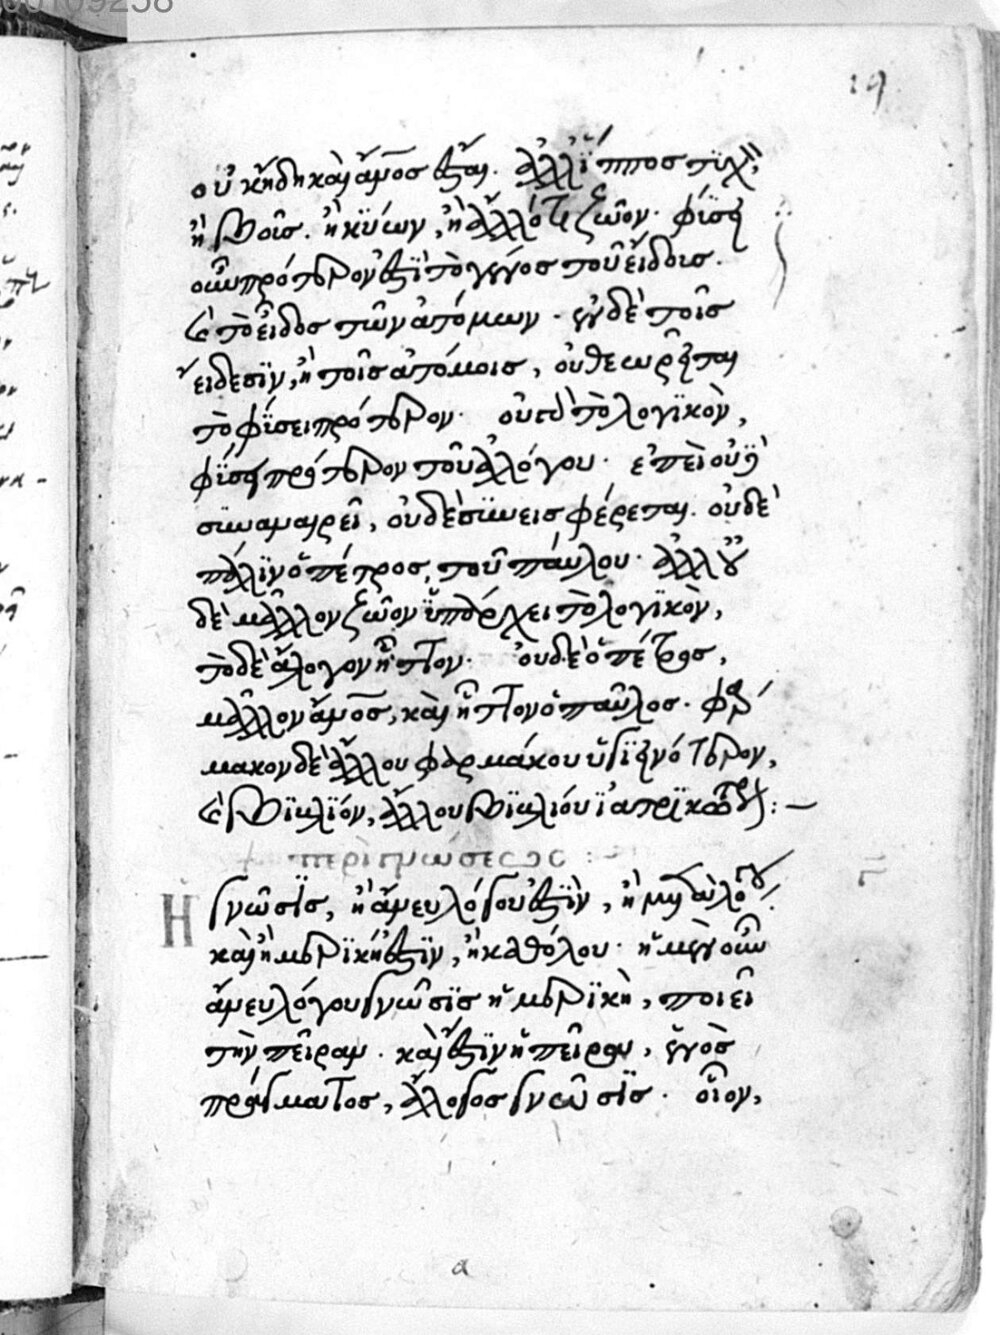 00109258
19
οὐκ ἤδη καὶ ἄν(θρωπ)ος ἔσται. ἀλλ' ἵππος τυχὸν,
ἢ βοῦς. ἢ κύων, ἢ ἄλλό τι ζῶον. φύσει
οὖν πρότερον ἐστὶ τὸ γένος τοῦ εἴδους.
καὶ τὸ εἶδος τῶν ἀτόμων. ἐν δὲ τοῖς
εἴδεσϊν, ἢ τοῖς ἀτόμοις, οὐ θεωρεῖται
τὸ φύσει πρότερον. οὔτε τὸ λογϊκὸν,
φύσει πρότερον τοῦ ἀλόγου. ἐπεὶ οὐ
συναναιρεῖ, οὐδὲ συνεισφέρεται. οὐδὲ
πάλϊν ὁ πέτρος, τοῦ παύλου. ἀλλ' οὐ
δὲ μᾶλλον ζῶον ὑπάρχει τὸ λογϊκὸν,
τὸ δὲ ἄλογον ἧττον. οὐδὲ ὁ πέτρος,
μᾶλλον ἄν(θρωπ)ος, καὶ ἧττον ὁ παῦλος. φάρ
μακον δὲ ἄλλου φαρμάκου ὑγϊεινότερον,
καὶ βϊβλϊόν, ἄλλου βϊβλίου ϊατρϊκώτερον:—
+ περὶ γνώσεως :—
Ἡ γνῶσϊς, ἢ ἄνευ λόγου ἐστϊν, ἢ μετὰ λόγου.
καὶ ἢ μερϊκή ἐστϊν, ἢ καθόλου. ἡ μὲν οὖν
ἄνευ λόγου γνῶσϊς ἡ μερϊκὴ, ποιεῖ
τὴν πεῖραν. καὶ ἔστϊν ἡ πεῖρα, ἑνὸς
πράγματος, ἄλογος γνῶσϊς. οἷον,
α